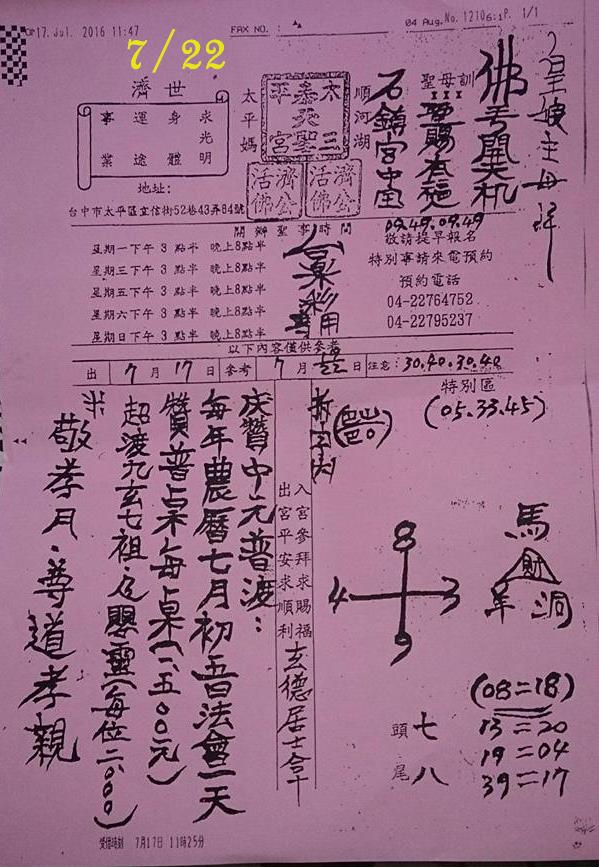 17. Jul. 2016 11:47
FAX NO. :
04 Aug. No. 1210 P. 1/1
7/22
皇娘主母降
佛号開天机
聖母訓
聖賜有福
石鎮宮中宝
順河湖
太三
泰天聖
平宮
太平媽
濟公活佛
濟公活佛
濟世
求光明
身體
運途
事業
地址:
台中市太平區宜信街52巷43弄84號
開辦聖事時間
星期一下午 3 點半 晚上8點半
星期三下午 3 點半 晚上8點半
星期五下午 3 點半 晚上8點半
星期六下午 3 點半 晚上8點半
星期日下午 3 點半 晚上8點半
09.49.09.49
敬請提早報名
特別事請來電預約
預約電話
04-22764752
04-22795237
以下內容僅供參考
出 7 月 17 日 參考 7 月 日 注意: 30.40.30.40
特別區
(05.33.45)
8
4 3
9
馬
財
羊 洞
(08=18)
13=20
19=04
39=17
頭 七
尾 八
入宮參拜求賜福
出宮平安求順利
玄德居士拿
慶贊中元普渡:
每年農曆七月初五日法會一天
贊普桌每桌(一、五00元)
超渡九玄七祖.及嬰靈(每位二、000)
敬孝月.尊道孝親
受信時刻 7月17日 11時25分